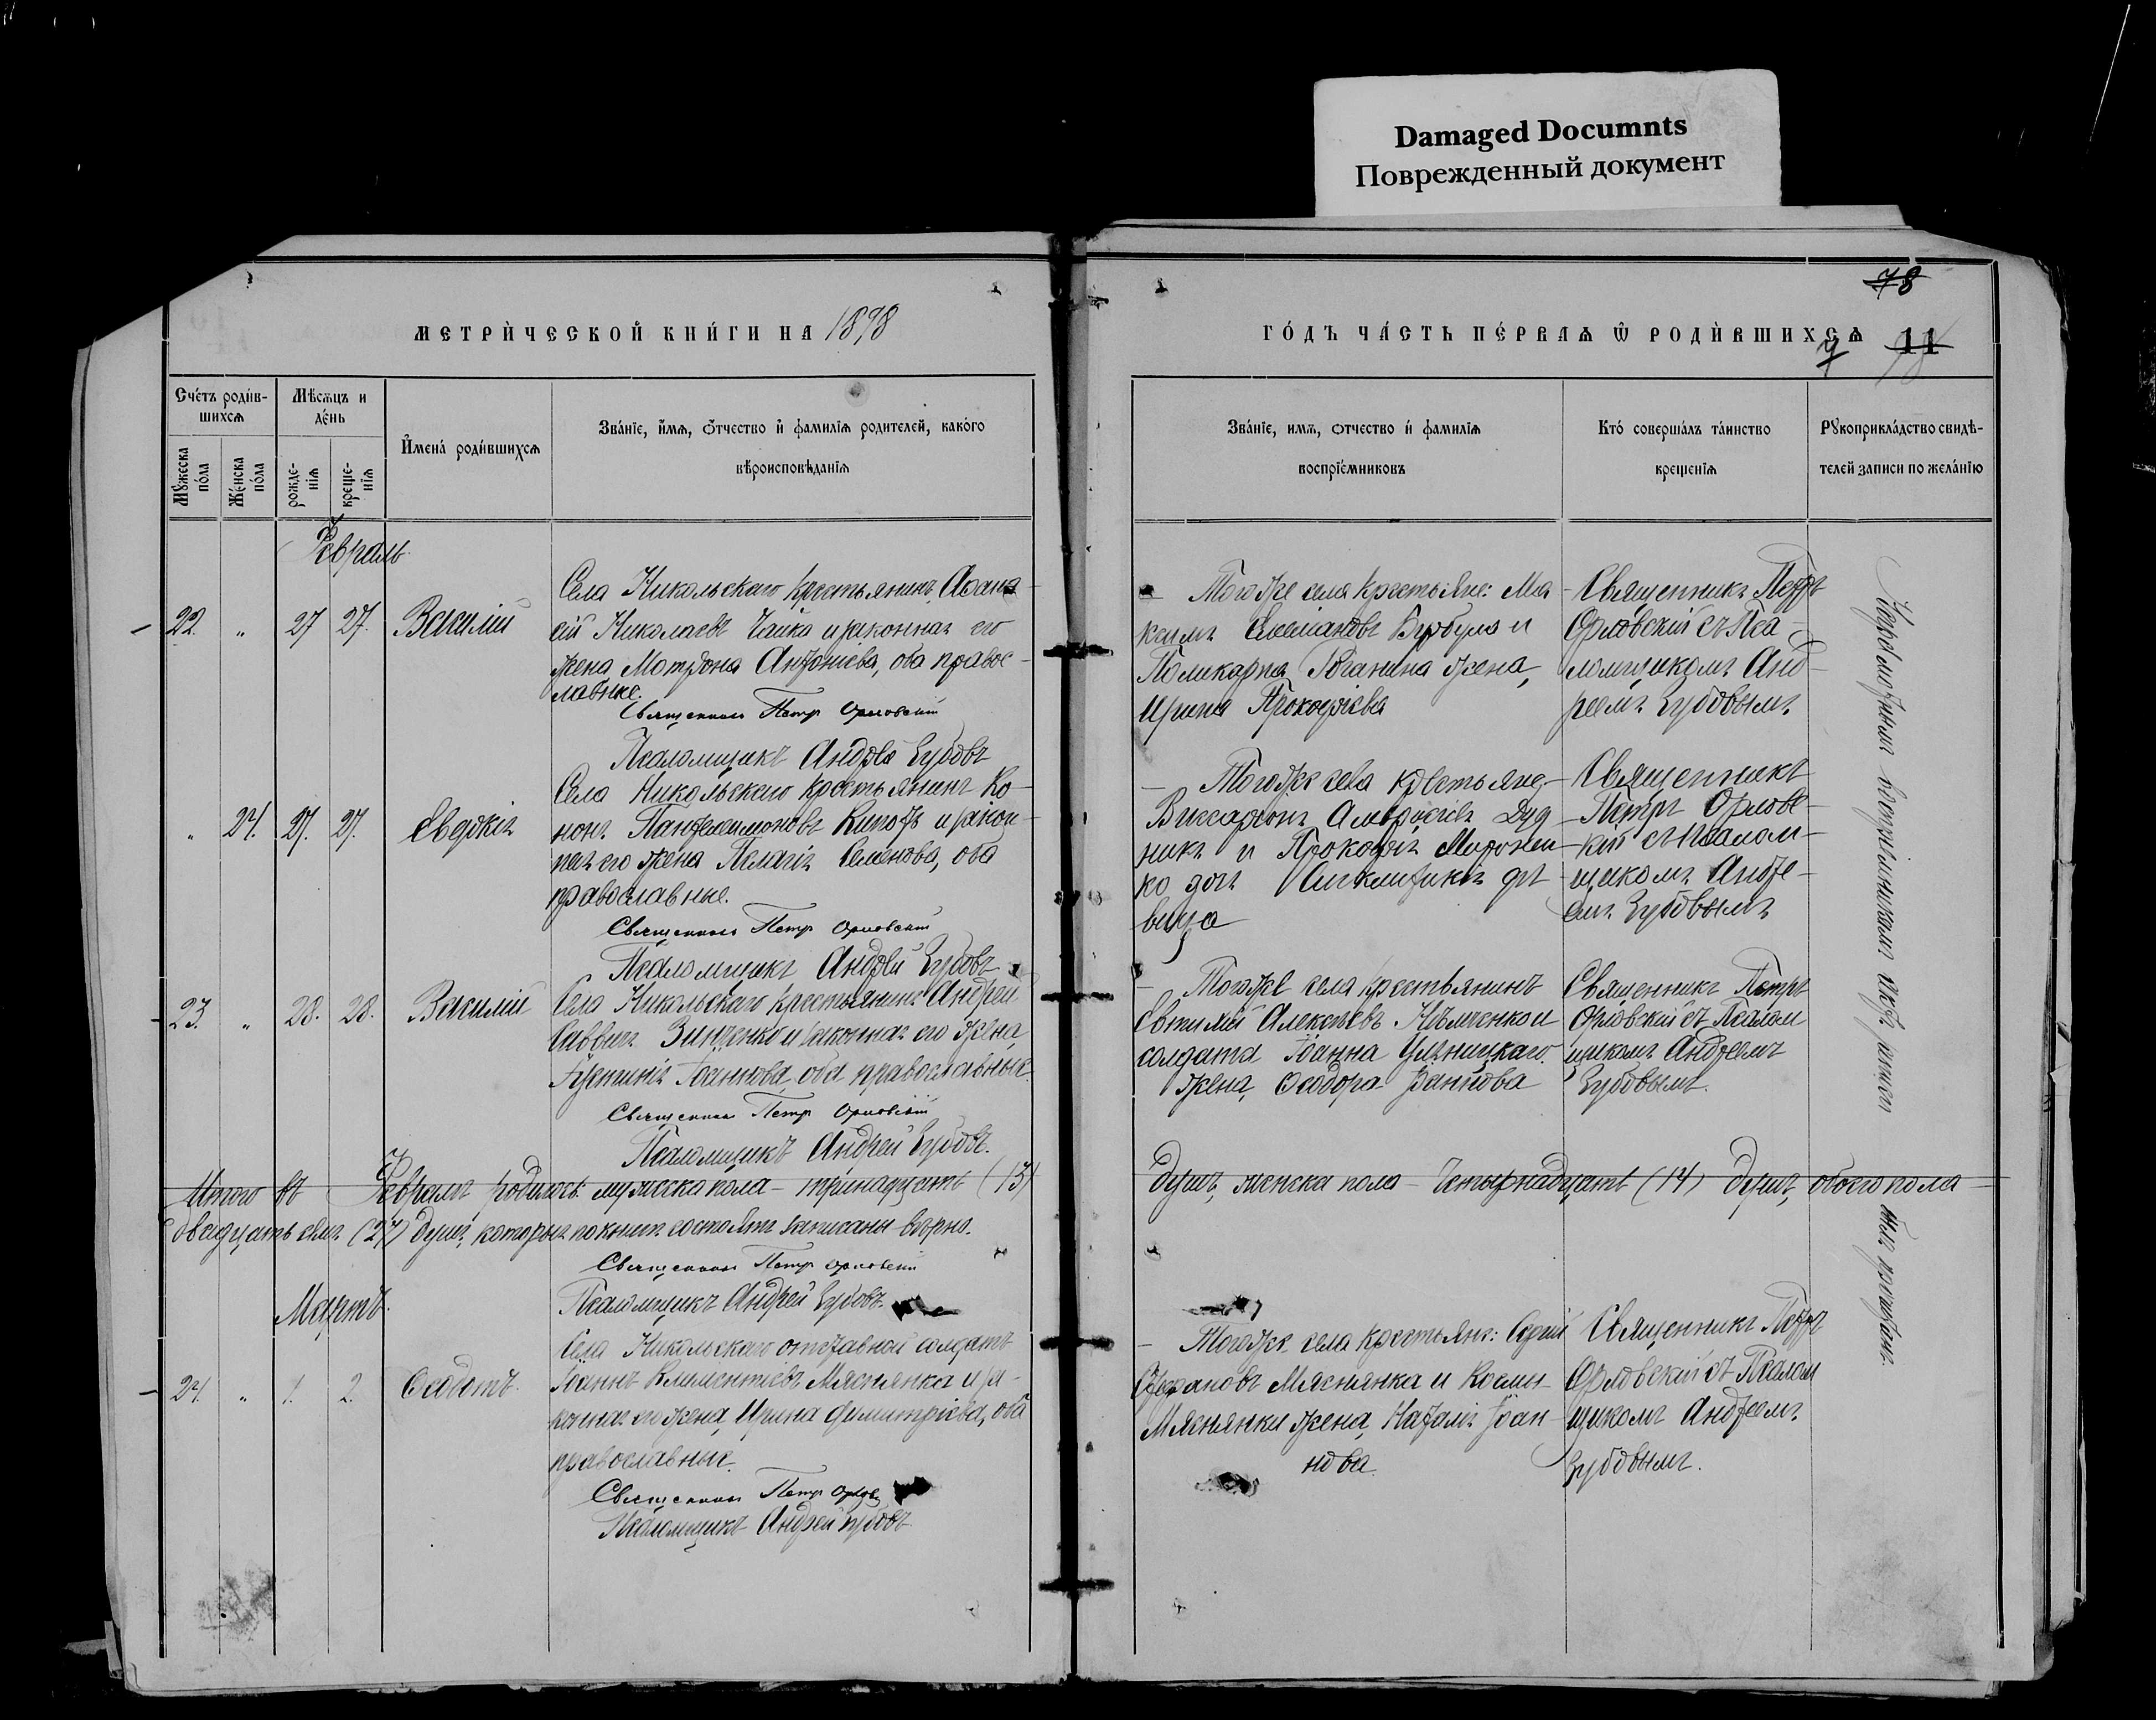 Damaged Documnts
Поврежденный документ
78
МЕТРИЧЕСКОЙ КНИГИ НА 1898
ГОДЪ ЧАСТЬ ПЕРВАЯ Ѿ РОДИВШИХСЯ 11
Счетъ родив-
шихся
Мѣсяцъ и
день
Имена родившихся
Званіе, имя, отчество и фамилія родителей, какого
вѣроисповѣданія
Мужеска
пола
Женска
пола
рожде-
нія
креще-
нія
Званіе, имя, отчество и фамилія
воспріемниковъ
Кто совершалъ таинство
крещенія
Рукоприкладство свидѣ-
телей записи по желанію
Февраль
22. " 27 27. Василій
Села Никольскаго крестьянинъ Аѳана-
сій Николаевъ Чайка и законная его
жена Матрона Антоніева, оба правос-
лавные.
Священникъ Петръ Орловскій
Псаломщикъ Андрей Зубовъ
— Того же села крестьяне: Ма-
ксимъ и
Поликарпа жена,
Ирина Прокофіева
Священникъ Петръ
Орловскій съ Пса-
ломщикомъ Анд-
реемъ Зубовымъ
" 24. 27. 27. Евдокія
Села Никольскаго крестьянинъ Ко-
нонъ Пантелеимоновъ и закон-
ная его жена Пелагія Семенова, оба
православные.
Священникъ Петръ Орловскій
Псаломщикъ Андрей Зубовъ
— Того же села крестьяне
Виссаріонъ Амвросіевъ Дуд-
никъ и Прокофія Миронен-
ко дочь Синклитикія дѣ-
вица
Священникъ
Петръ Орловс-
кій съ Псалом-
щикомъ Андре-
емъ Зубовымъ
23. " 28. 28. Василій
Села Никольскаго крестьянинъ Андрей
Саввинъ Зинченко и законная его жена
Іустинія Іоаннова, оба православные.
Священникъ Петръ Орловскій
Псаломщикъ Андрей Зубовъ.
— Того же села крестьянинъ
Евтимій Алексѣевъ Нѣмченко и
солдата Іоанна Уляницкаго
жена, Ѳеодора Іоаннова
Священникъ Петръ
Орловскій съ Псалом
щикомъ Андреемъ
Зубовымъ.
Итого въ Февралѣ родилось: мужеска пола — тринадцать (13)
душъ, женска пола — Четырнадцать (14) душъ, обоего пола —
двадцать семь (27) душъ, которыя по книгѣ состоятъ записаны вѣрно.
Священникъ Петръ Орловскій
Псаломщикъ Андрей Зубовъ.
Мартъ.
24. " 1. 2. Ѳеодотъ
Села Никольскаго отставной солдатъ
Іоаннъ Климентіевъ Мяснянка и за-
конная его жена, Ирина Димитріева, оба
православные.
Священникъ Петръ
Псаломщикъ Андрей Зубовъ
— Того же села крестьяне: Сергій
Стефановъ Мяснянка и Косьмы
Мяснянки жена, Наталія Іоан-
нова.
Священникъ Петръ
Орловскій съ Псалом
щикомъ Андреемъ
Зубовымъ.